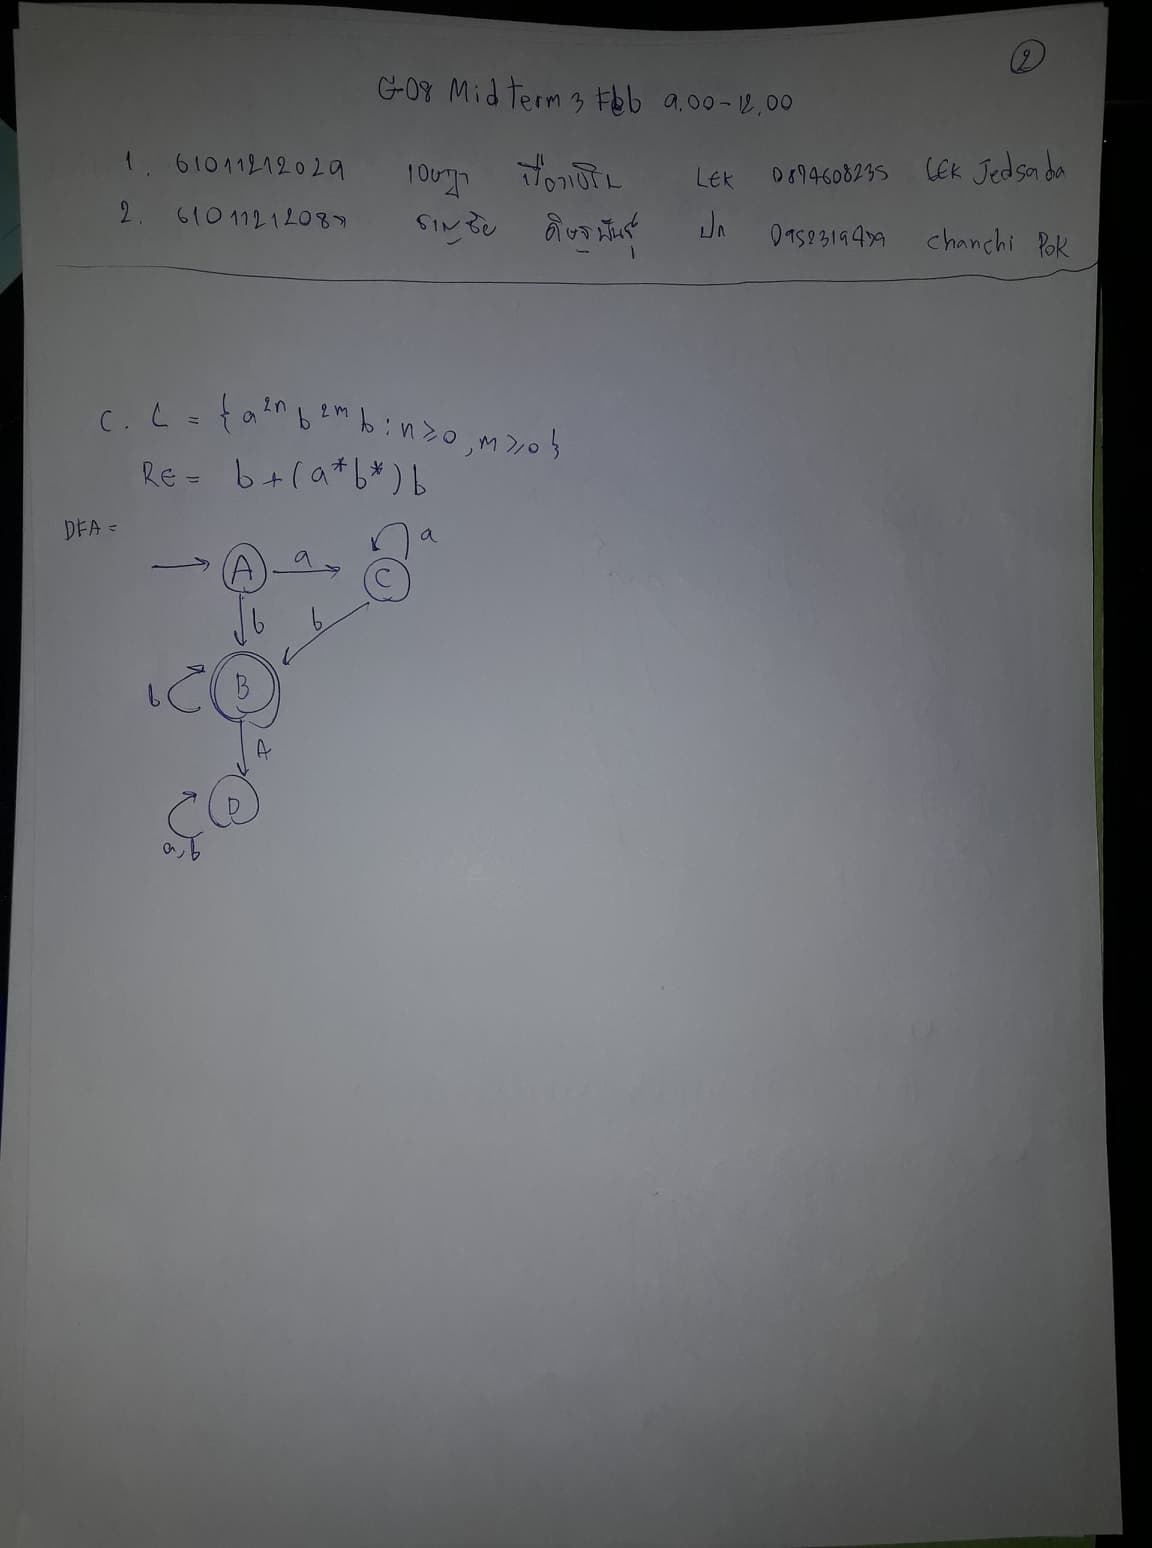 2
G08 Midterm 3 Feb 9.00-12.00
1. 61011212029 LEK 0894608235 LEK Jedsada
2. ชาญชัย ดิษฐพันธุ์ ปก chanchi Pok
C. L = { a^2n b^2m b : n ≥ 0, m ≥ 0 }
RE = b + (a* b*) b
DFA =
A a C a
b b
b B
A
D
a, b